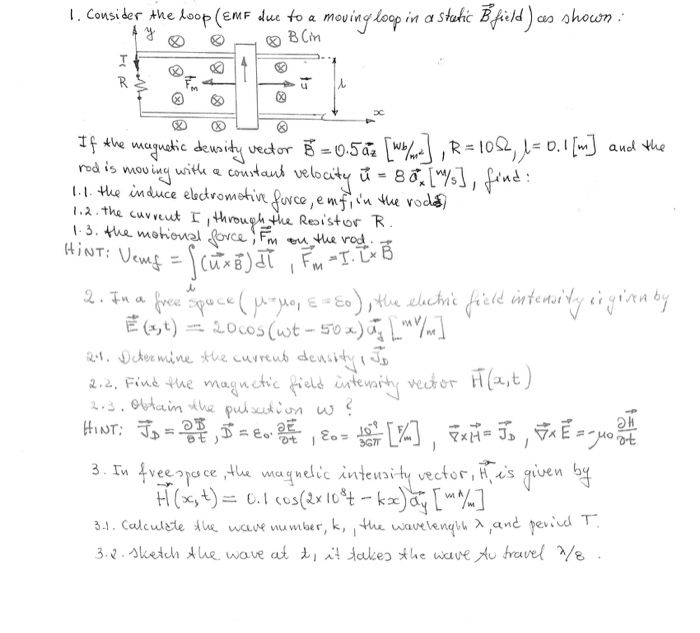 1. Consider the loop (EMF due to a moving loop in a static B⃗ field) as shown:
y B (in
I
R F⃗m u⃗ l
x
If the magnetic density vector B⃗ = 0.5a⃗z [Wb/m²], R = 10Ω, l = 0.1 [m] and the
rod is moving with a constant velocity u⃗ = 8 a⃗x [m/s], find:
1.1. the induce electromotive force, emf, in the rod
1.2. the current I, through the Resistor R.
1.3. the motional force, F⃗m on the rod.
HINT: Vemf = ∫(u⃗×B⃗) dl⃗, F⃗m = I. L⃗×B⃗
l
2. In a free space (μ=μ0, ε=ε0), the electric field intensity is given by
E⃗(x,t) = 20cos(ωt – 50x) a⃗y [mV/m]
2.1. Determine the current density, J⃗D
2.2. Find the magnetic field intensity vector H⃗(x,t)
2.3. Obtain the pulsation ω?
HINT: J⃗D = ∂D⃗/∂t, D⃗ = ε0. ∂E⃗/∂t, ε0 = 10⁻⁹/36π [F/m], ∇⃗×H⃗ = J⃗D, ∇⃗×E⃗ = -μ0 ∂H⃗/∂t
3. In free space, the magnetic intensity vector, H⃗, is given by
H⃗(x,t) = 0.1 cos(2×10⁸t – kx) a⃗y [mA/m]
3.1. Calculate the wave number, k, the wavelength λ, and period T.
3.2. Sketch the wave at t, it takes the wave to travel λ/8.